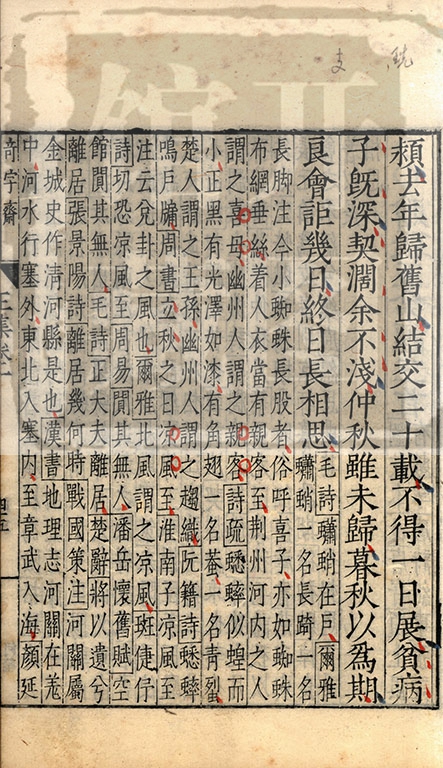 頻去年歸舊山結交二十載不得一日展貧病
子旣深契濶余不淺仲秋雖未歸暮秋以爲期
良會詎幾日終日長相思
毛詩蠨蛸在戶爾雅
蠨蛸一名長踦一名
長脚注今小蜘蛛長股者俗呼喜子亦如蜘蛛
布網垂絲著人衣當有親客至荆州河内之人
謂之喜母幽州人謂之親客詩疏蟋蟀似蝗而
小正黑有光澤如漆有角翅一名蛬一名青蛚
楚人謂之王孫幽州人謂之趨織阮籍詩蟋蟀
鳴戶牖周書立秋之日凉風至淮南子凉風至
注云兌卦之風也爾雅北風謂之凉風班倢伃
詩切恐凉風至周易闃其無人潘岳懷舊賦空
館闃其無人毛詩正大夫離居楚辭將以遺兮
離居張景陽詩離居幾何時戰國策注河關屬
金城史作清河縣是也漢書地理志河關在羌
中河水行塞外東北入塞内至章武入海顔延
奇字齋